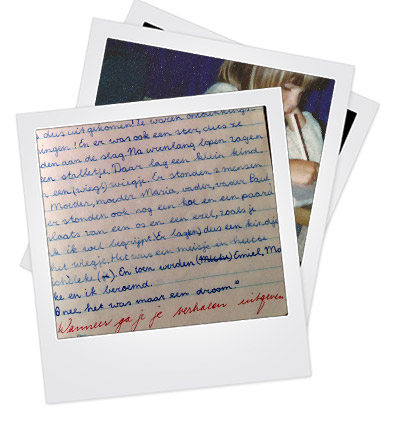 dus uitgekomen! Ze waren
ingen! En er was ook een ster, dus ze
den aan de slag. Na urenlang lopen zagen
een stalletje. Daar lag een klein kind
een (wieg) wiegje. Er stonden 2 mensen
Moeder, moeder Maria, vader, vader Paul
er stonden ook nog een koe en een paard
plaats van een os en een ezel, zoals je
ik wel begrijpt. Er lag(en) dus een kindje
het wiegje. Het was een meisje en heette
En toen werden Emiel, Mo
ke en ik beroemd.
O nee, het was maar een droom."
Wanneer ga je je verhalen uitgeven